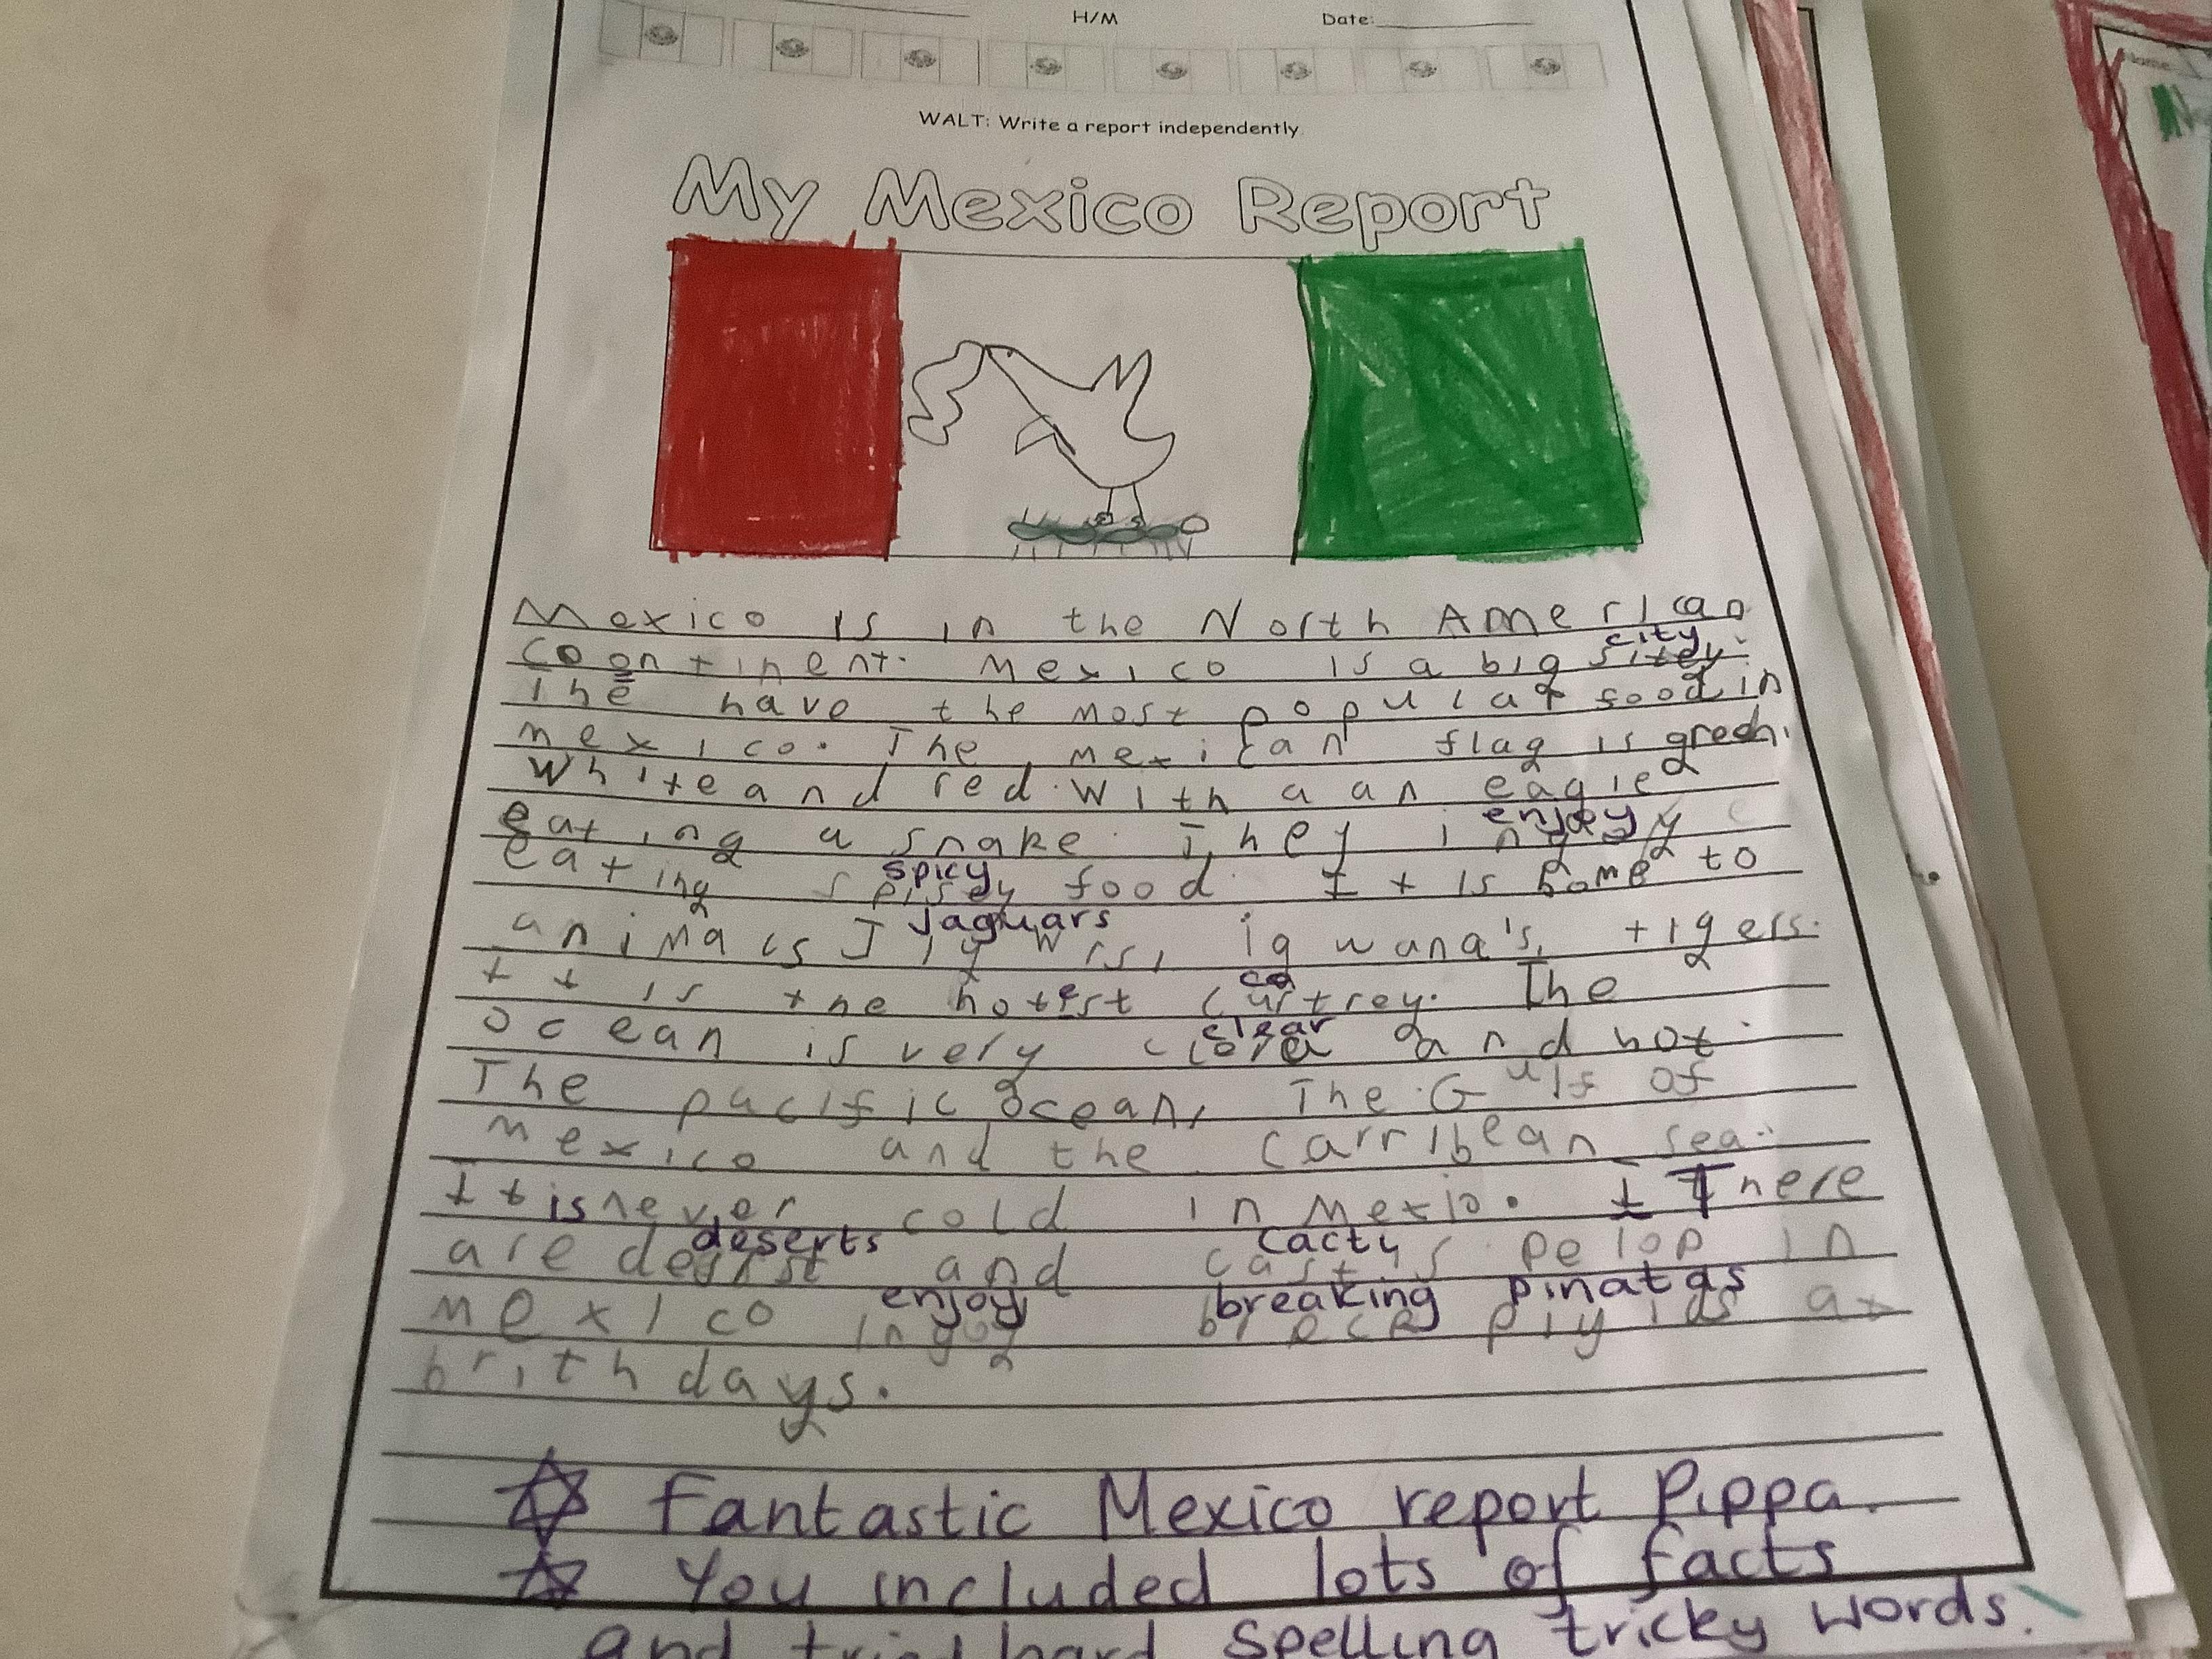 H/M Date:
WALT: Write a report independently
My Mexico Report
Mexico is in the North American
city
continent. Mexico is a big sitey.
The have the most popular food in
mexico. The mexican flag is green.
White and red. With a an eagle
enjoy
eating a snake. They
spicy
eating spisey food. It is home to
jaguars
animals igwana's, tigers.
It is the hotest
The
clear
ocean is very and hot.
The pacific ocean, The Gulf of
mexico and the carribean sea.
It is never cold in Mexio. There
deserts cacty
are and pelop in
enjoy breaking pinatas
mexico ingoy at
brithdays.
Fantastic Mexico report Pippa.
You included lots of facts
and tried hard spelling tricky words.
Name: